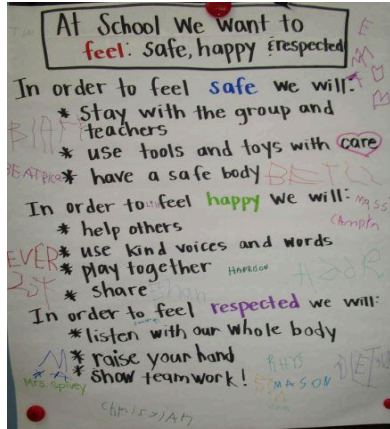 At School We Want to
feel: safe, happy & respected
In order to feel safe we will:
* Stay with the group and
teachers
* use tools and toys with care
* have a safe body
In order to feel happy we will:
* help others
* use kind voices and words
* play together
HARRISON
* Share
In order to feel respected we will:
* listen with our whole body
* raise your hand
* Show teamwork!
Mrs. Spivey
RHYS
MASON